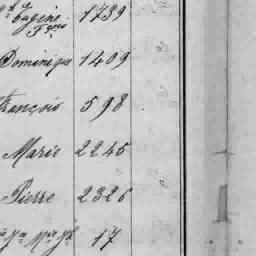 Eugène 1739
Dominique 1409
François 598
Marie 2245
Pierre 2326
17